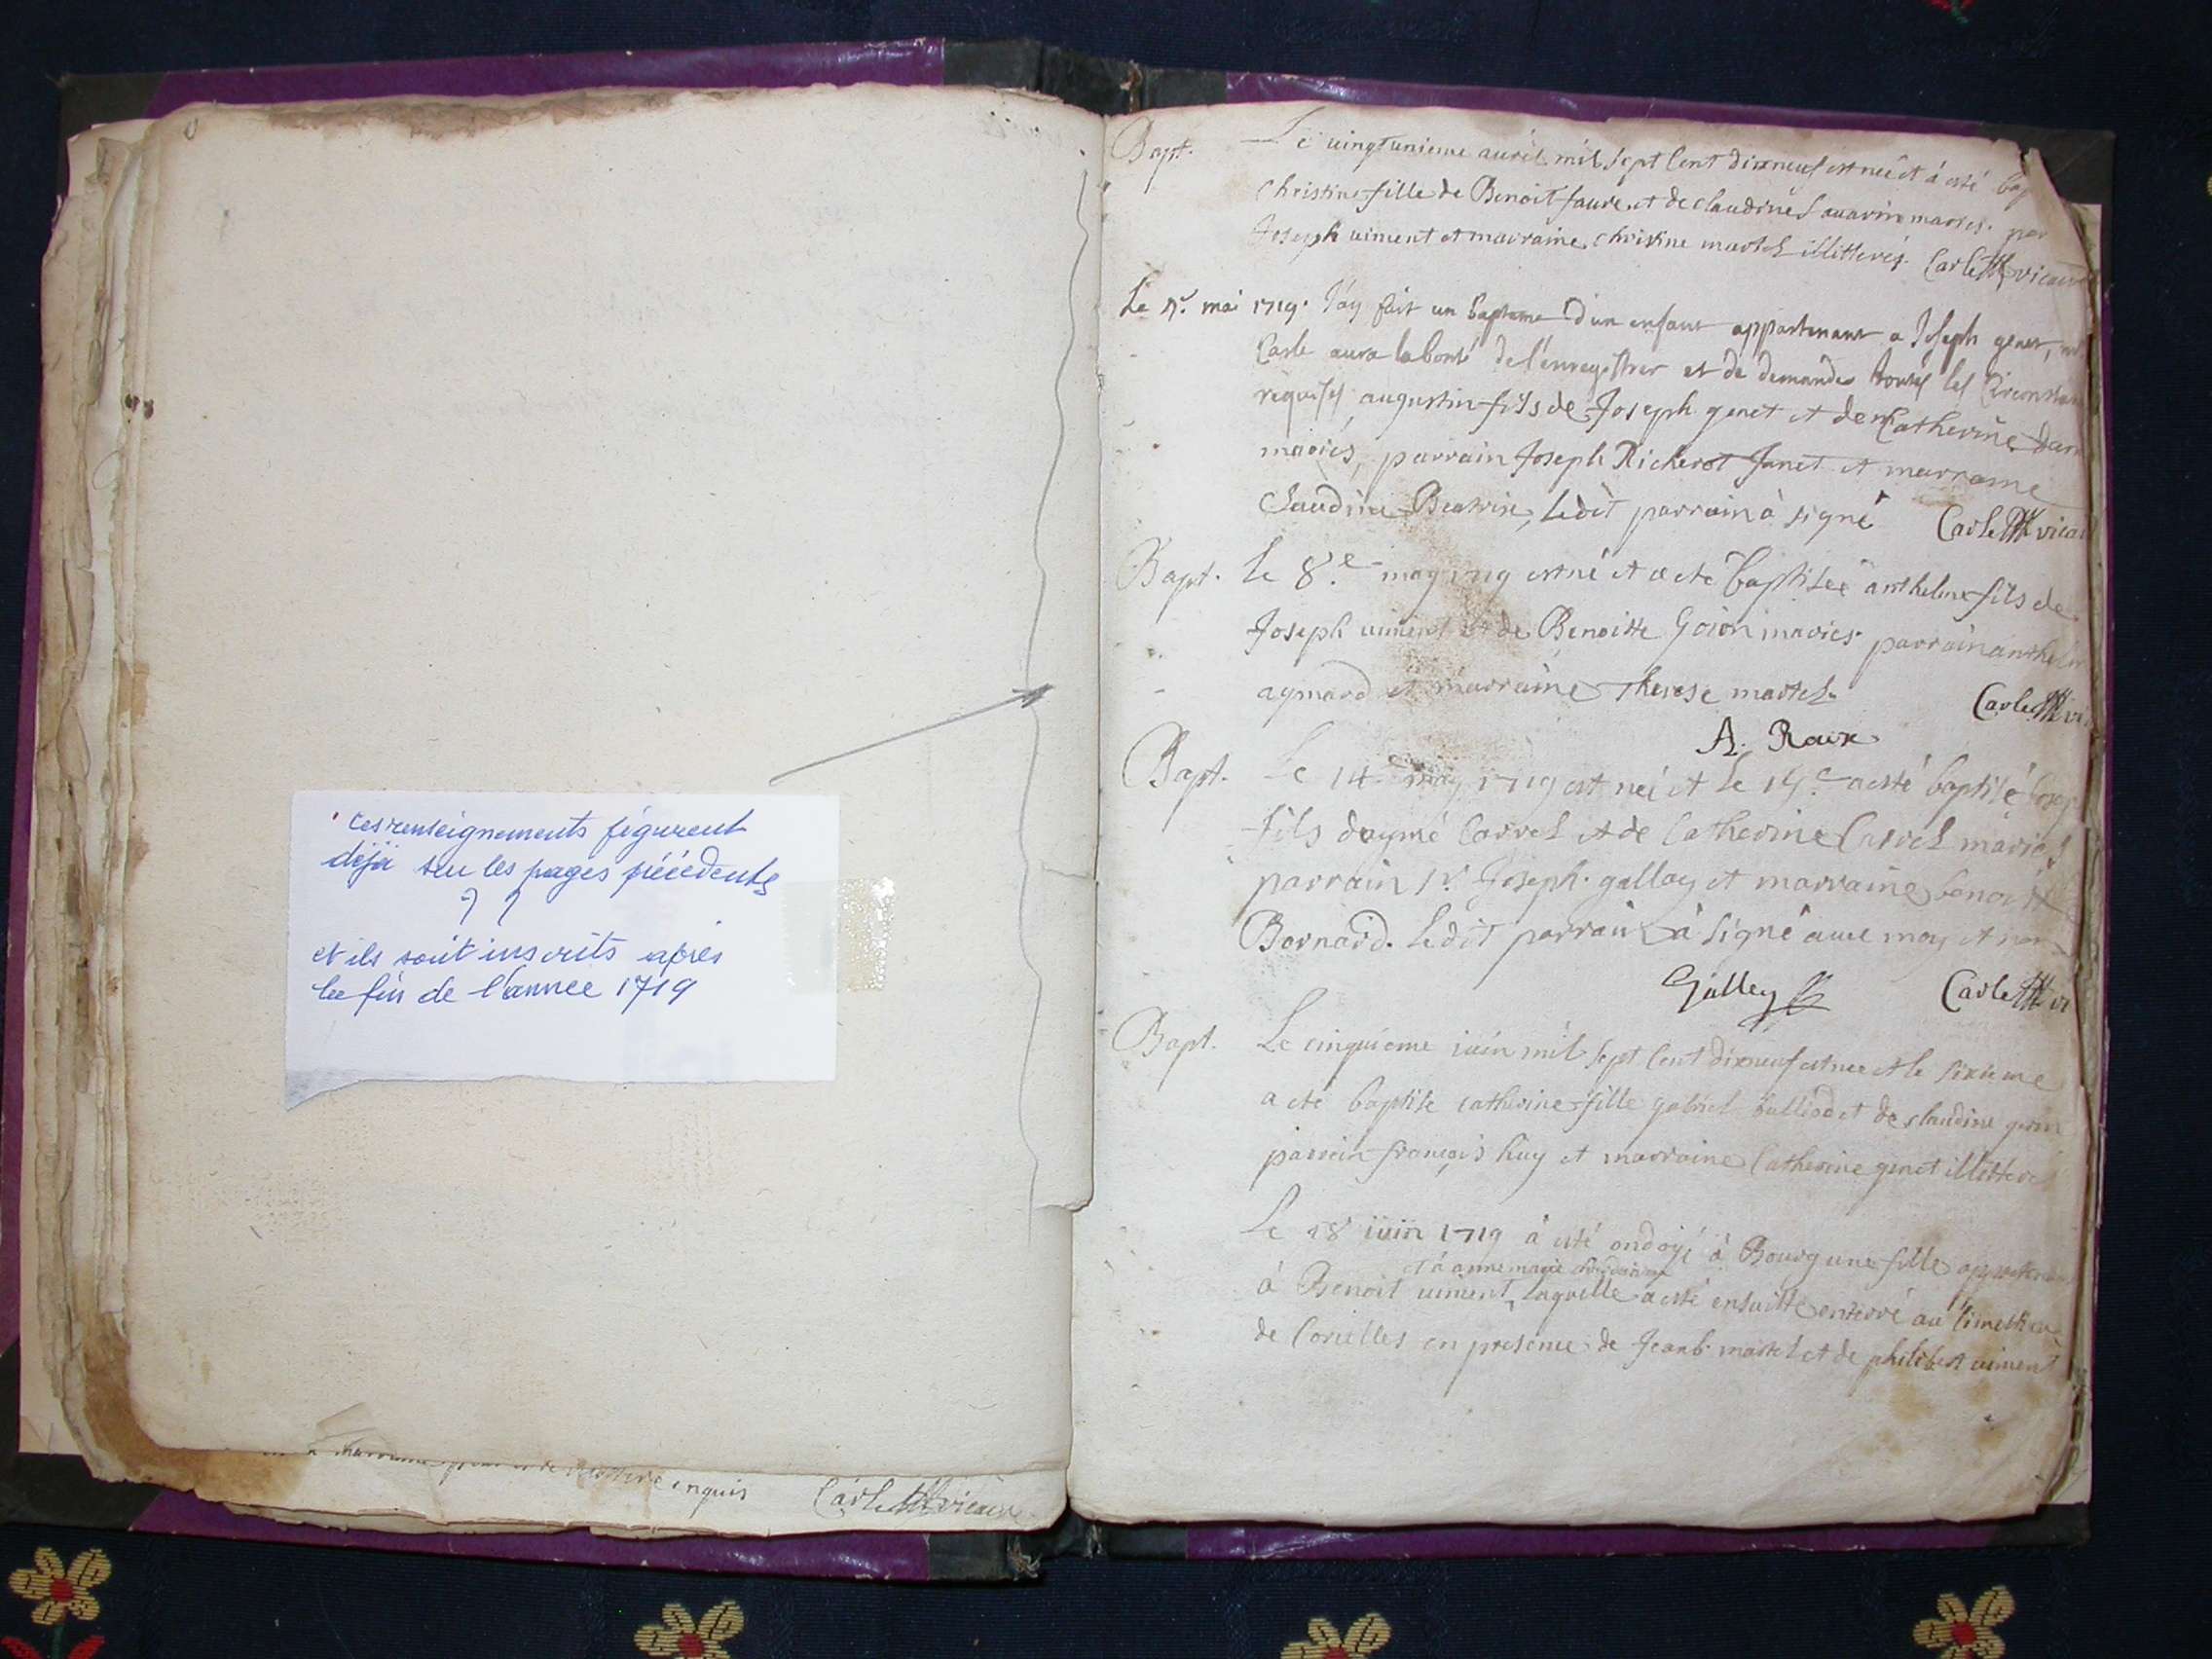 ces renseignements figurent
déjà sur les pages précédents
? ?
et ils sont inscrits après
la fin de l'année 1719
enquis Carle vicaire
Bapt. Le uingtunieme auril mil sept cent dixneuf est neé et à esté bap
christine fille de Benoit faure et de claudine mariés. par
Joseph uiment et marraine christine martel illitterés. Carle vicaire
Le mai 1719. J'ay fait un bapteme d'un enfant appartenant a Joseph genet,
Carle aura la bonté de l'enregistrer et de demander toutes les circonstan
requises augustin fils de Joseph genet et de Catherine
mariés, parrain Joseph Richerot Janet et marraine
Claudine Beatrix, ledit parrain à signé Carle vicai
Bapt. Le 8.e may 1719 est né et a eté baptisée anthelme fils de
Joseph uiment et de Benoitte Goion mariés. parrain anthelm
aymard et marraine Therese martel. Carle vi
A. Roux
Bapt. Le 14.e may 1719 est né et le 15.e a esté baptisé Josep
fils d'aymé Carrel et de Catherine Carrel mariés
parrain Sr. Joseph galley et marraine benoitte
Bornard. ledit parrain à signé auec moy et non
Galley Carle vi
Bapt. Le cinquieme iuin mil sept cent dixneuf est nee et le sixieme
a eté baptisé catherine fille gabriel et de claudine
parrain françois huy et marraine Catherine genet illitteré
Le 18 iuin 1719 à esté ondoyé à Bourg une fille appartenan
et à anne marie
à Benoit uiment, laquelle a esté ensuitte enterré au cimettiere
de Corcelles en presence de Jean b. martel et de philibert uiment